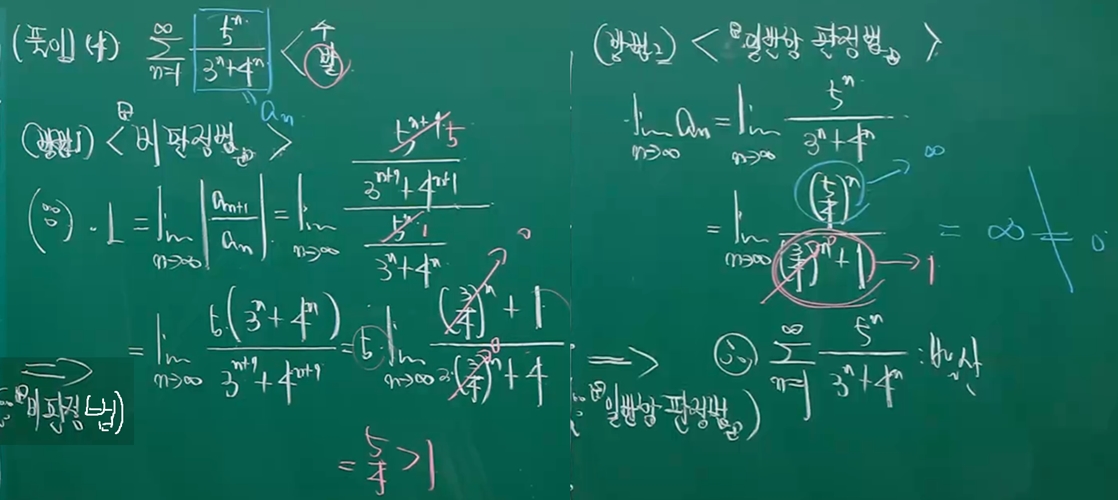 (풀이 (4) ∑_{n=1}^{∞} 5^n / (3^n + 4^n) < 수 발
" a_n
(방법1) < 비 판정법 >
(∵) · L = lim_{n→∞} |a_{n+1} / a_n| = lim_{n→∞} (5^{n+1} 5 / (3^{n+1} + 4^{n+1})) / (5^n 1 / (3^n + 4^n))
= lim_{n→∞} 5·(3^n + 4^n) / (3^{n+1} + 4^{n+1}) = 5 lim_{n→∞} ((3/4)^n + 1) / (3·(3/4)^n + 4) 0 0
= 5/4 > 1
⟹
(∵ 비판정법)
(방법2) < 일반항 판정법 >
lim_{n→∞} a_n = lim_{n→∞} 5^n / (3^n + 4^n)
= lim_{n→∞} (5/4)^n / ((3/4)^n + 1) → ∞ 0 → 1 = ∞ ≠ 0
⟹ ∴ ∑_{n=1}^{∞} 5^n / (3^n + 4^n) : 발산
(∵ 일반항 판정법)